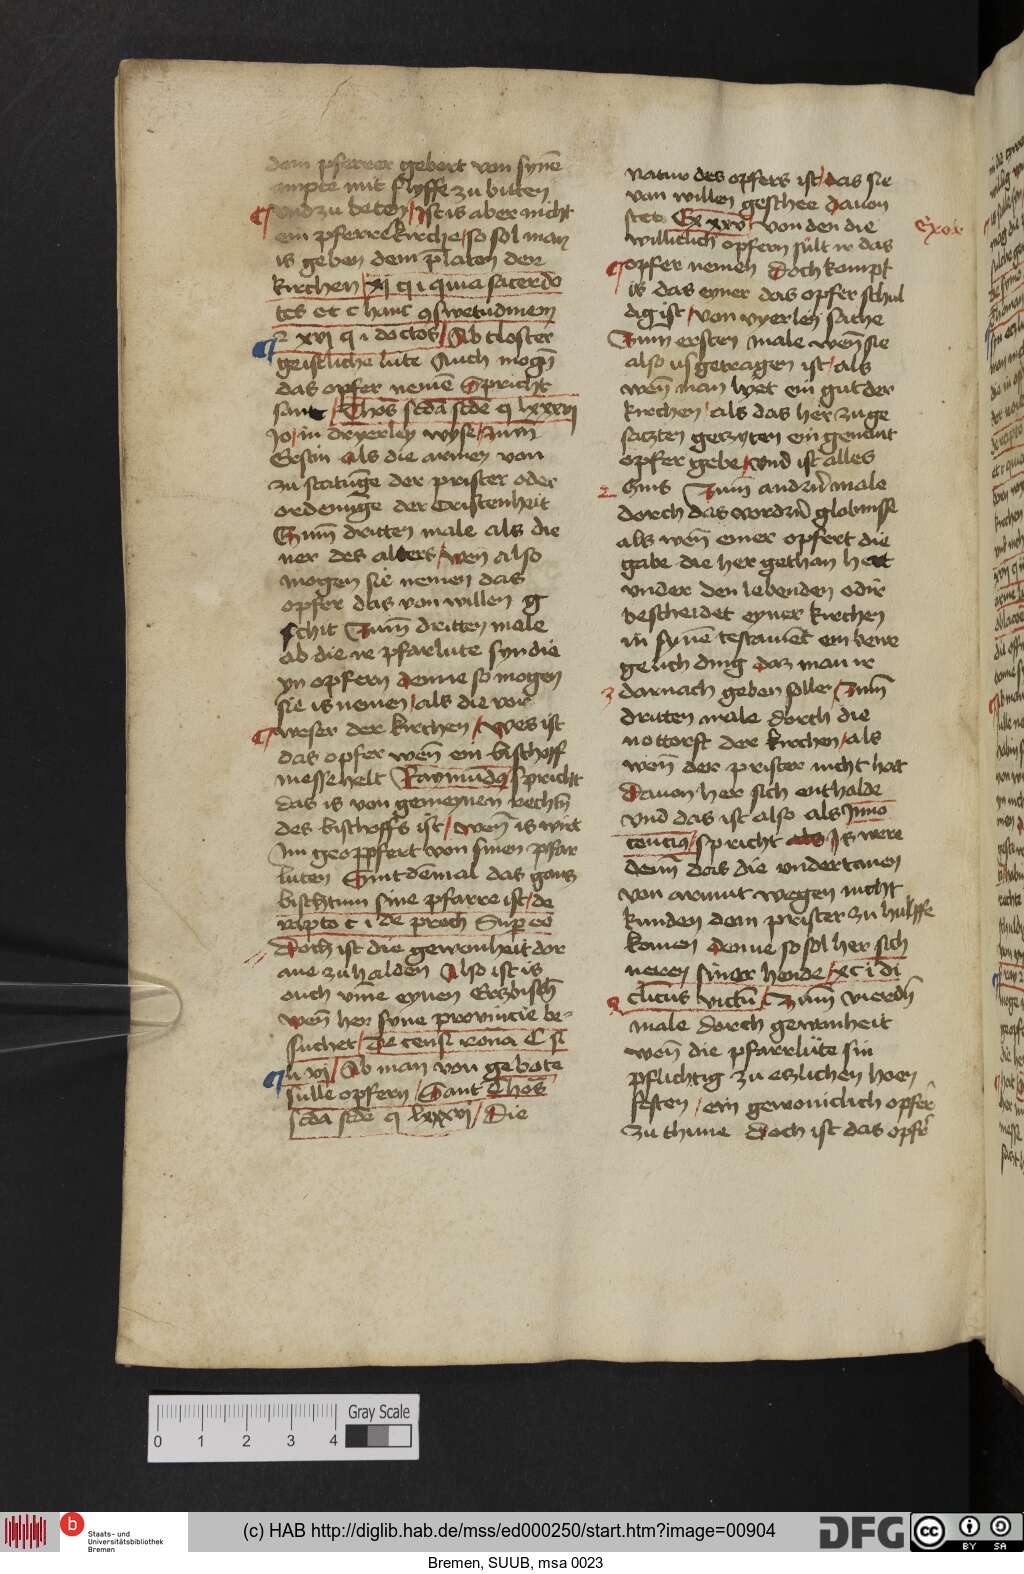 dem pferrer gebort von synē
ampte mit flysse zu bitten
vnd zu beten / Ist is aber nicht
ein pferre kirche / so sol man
is geben dem platen der
kirchen / xij q i quia sacerdo
tes et c hanc ꝯswetudinem
2 xvj q i doctos / Ab closter
geistliche lute Auch mogen
das opfer nemē Spricht
sant / Thos scda scde q lxxxvj
Jo / in dryerley wyse / zum
Ersten als die armen von
zu statunge der prister oder
ordenūge der Cristenheit
Zum dritten male als die
ner des alters / wen also
mogen sie nemen das
opfer das von willen g
schit Zum dritten male
ab die ir pfarlute syn die
yn opfern denne so mogen
sie is nemen / als die vor
weser der kirchen / Wes ist
das opfer wen̄ ein bischoff
messe helt Raymūdus spricht
das is von gemeynen rechtn̄
des bischoffs ist / wen̄ is wirt
Im geoppfert von sinen pfar
luten Sint demal das gantz
bischtum sine pfarre ist / de
rapto c i de proch Sup eo
Doch ist die gewonheit dor
ane zu halden Also ist is
ouch vm̄e eynen Erzbisch
wen̄ her syne provincie be-
suchet / De censi romā C si
li vj / Ab man von gebote
sulle opfern / Sant Thos
scda scde q lxxxvj / Die
natur des opfers ist / das sie
von willen geschee dauon
stet Ex xxv / von den die
williclich opfern sült ir das
opfer nemen Doch kompt
is das eyner das opfer schul
dig ist / von vyerley sache
Zum ersten male wen̄ sie
also us getragen ist / als
wen̄ man lyet ein gut der
kirchen / als das her zu ge
saczten gezyten ein genant
opfer gebe / vnd ist alles
Zum andern male
dorch das vordern globnisse
als wen̄ einer opfert die
gabe die her gethan hett
vnder den lebenden oder
bescheidet eyner kirchen
in synē testamēt ein bewe
gelich ding daz man ir
3 darnach geben soller / Zum
dritten male dorch die
nottorft der kirchen / als
wen̄ der prister nicht hat
dauon her sich enthalde
vnd das ist also als Inno
cencius / spricht Is were
denn̄ das die vndertanen
von armut wegen nicht
kunden dem prister zu hulffe
komen denne so sol her sich
neren siner hende / xc i di
clicus victū / Zum vierdn̄
male dorch gewonheit
wen̄ die pfarrlüte sin
pflichtig zu ezlichen hoen
festen / ein gewoniclich opfer
zu thune Doch ist das opfer
Exo xx
0 1 2 3 4
Gray Scale
b
Staats- und
Universitätsbibliothek
Bremen
(c) HAB http://diglib.hab.de/mss/ed000250/start.htm?image=00904
DFG
cc
BY SA
Bremen, SUUB, msa 0023